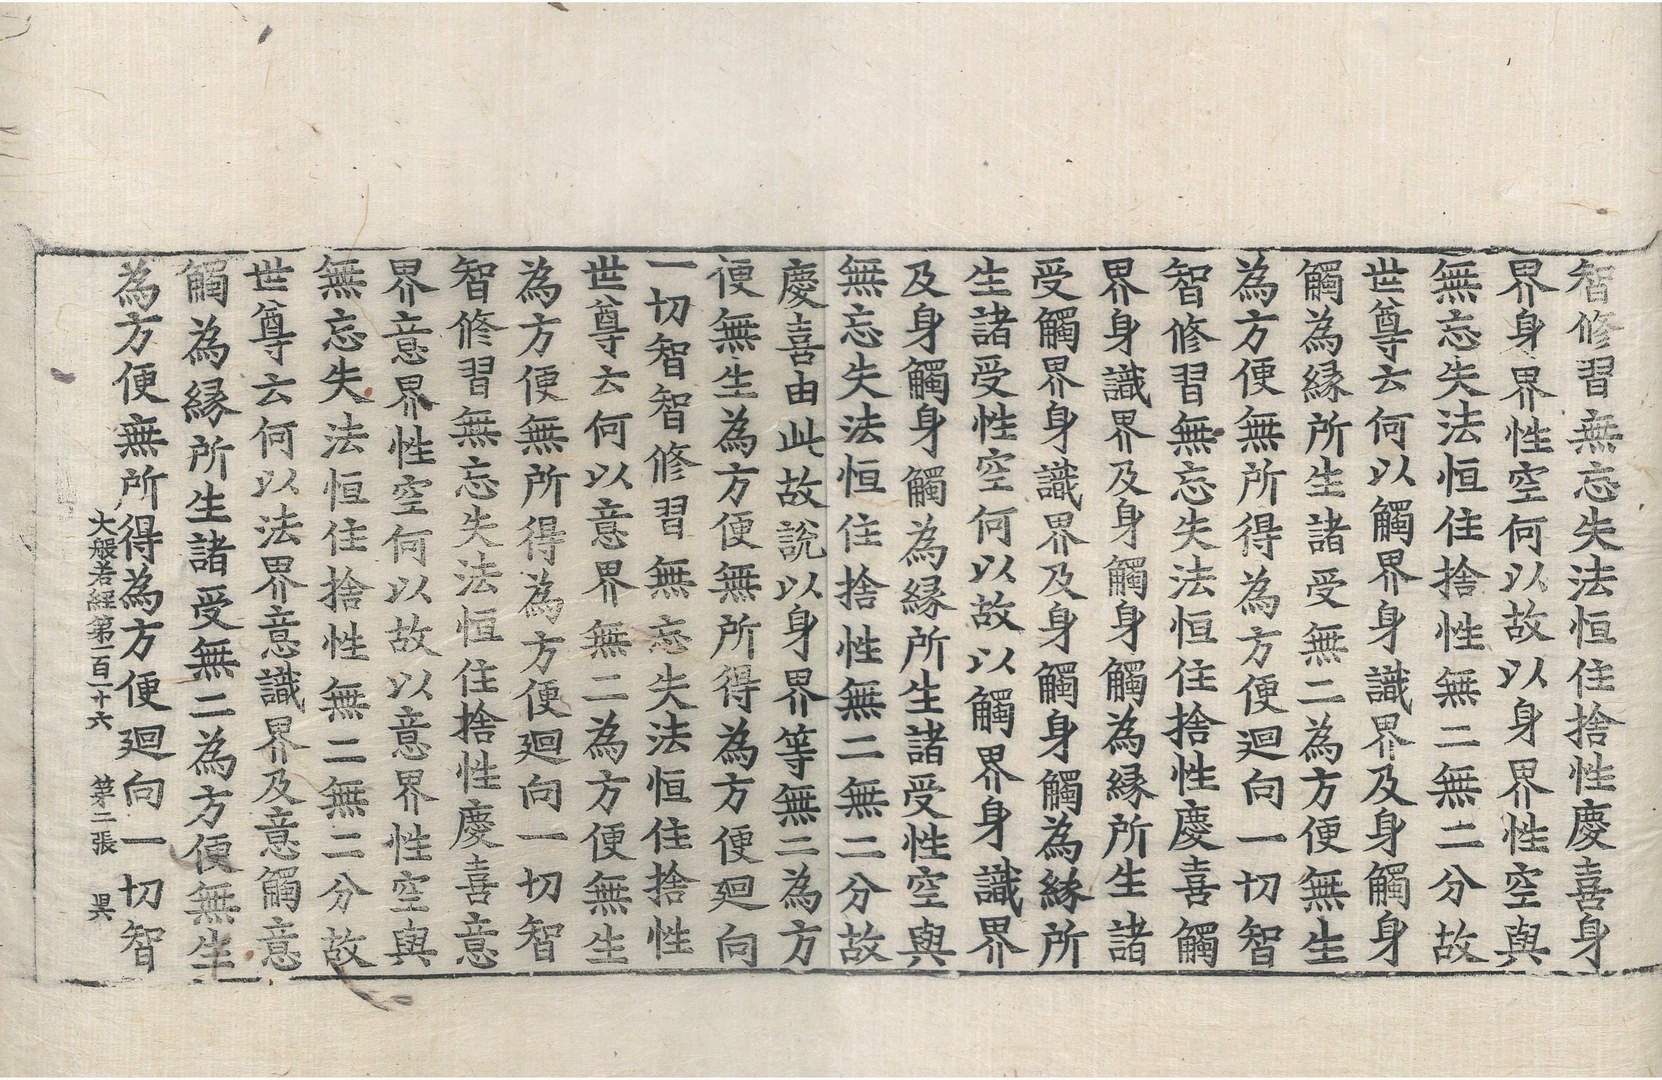 智修習無忘失法恒住捨性慶喜身
界身界性空何以故以身界性空與
無忘失法恒住捨性無二無二分故
世尊云何以觸界身識界及身觸身
觸為縁所生諸受無二為方便無生
為方便無所得為方便迴向一切智
智修習無忘失法恒住捨性慶喜觸
界身識界及身觸身觸為縁所生諸
受觸界身識界及身觸身觸為縁所
生諸受性空何以故以觸界身識界
及身觸身觸為縁所生諸受性空與
無忘失法恒住捨性無二無二分故
慶喜由此故說以身界等無二為方
便無生為方便無所得為方便迴向
一切智智修習無忘失法恒住捨性
世尊云何以意界無二為方便無生
為方便無所得為方便迴向一切智
智修習無忘失法恒住捨性慶喜意
界意界性空何以故以意界性空與
無忘失法恒住捨性無二無二分故
世尊云何以法界意識界及意觸意
觸為縁所生諸受無二為方便無生
為方便無所得為方便迴向一切智
大般若經第一百一十六 第二張 昃